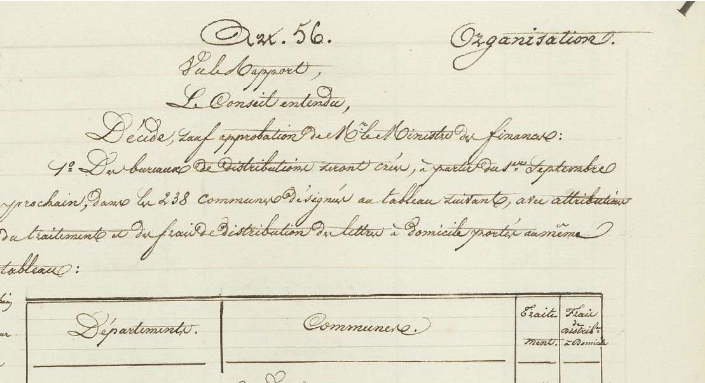 Art. 56. Organisation.
Vu le Rapport,
Le Conseil entendu,
Décide, sauf approbation de Mr. le Ministre des finances:
1º Des bureaux de distributions seront créés, à partir du 1er Septembre
prochain, dans les 238 communes désignées au tableau suivant, avec attribution
du traitement et des frais de distribution des lettres à domicile portés au même
tableau:
Départements. Communes. Traite
ment. Frais
de
distribon
à Domicile